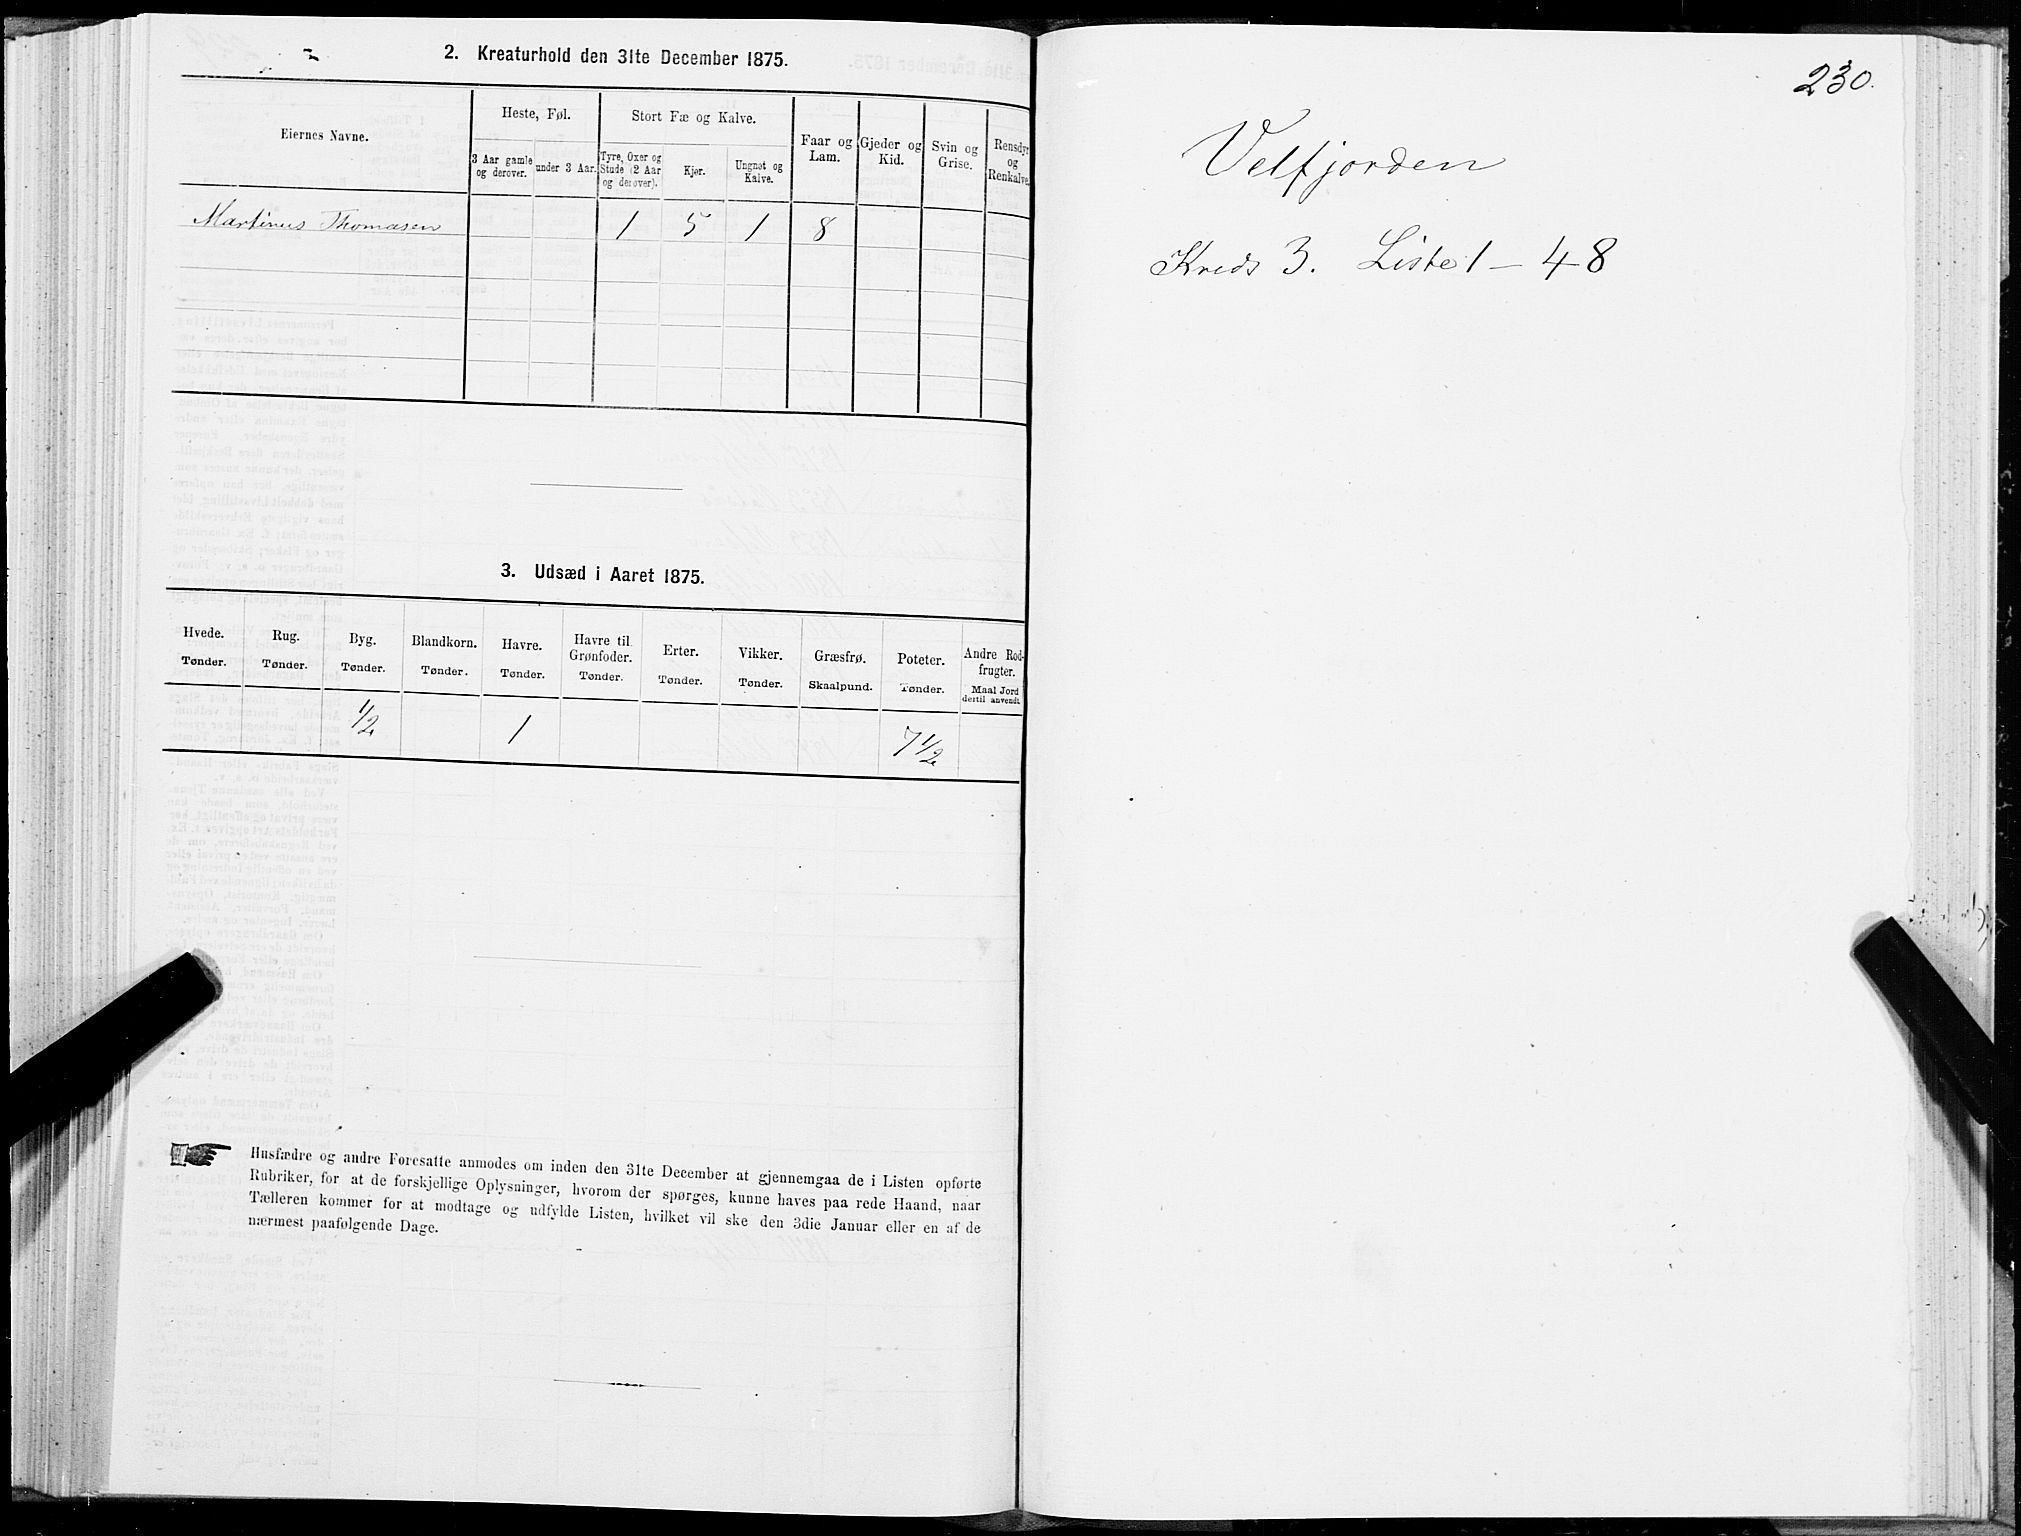 2. Kreaturhold den 31te December 1875.
Eiernes Navne.
Heste, Føl.
Stort Fæ og Kalve.
3 Aar gamle og derover.
under 3 Aar.
Tyre, Oxer og Stude (2 Aar og derover).
Kjør.
Ungnøt og Kalve.
Faar og Lam.
Gjeder og Kid.
Svin og Grise.
Rensdyr og Renkalve.
Martinus Thomasen 1 5 1 8
3. Udsæd i Aaret 1875.
Hvede. Rug. Byg. Blandkorn. Havre. Havre til Grønfoder. Erter. Vikker. Græsfrø. Poteter. Andre Rodfrugter.
Tønder. Tønder. Tønder. Tønder. Tønder. Tønder. Tønder. Tønder. Skaalpund. Tønder. Maal Jord dertil anvendt.
1/2 1 7 1/2
Husfædre og andre Foresatte anmodes om inden den 31te December at gjennemgaa de i Listen opførte
Rubriker, for at de forskjellige Oplysninger, hvorom der spørges, kunne haves paa rede Haand, naar
Tælleren kommer for at modtage og udfylde Listen, hvilket vil ske den 3die Januar eller en af de
nærmest paafølgende Dage.
230.
Velfjorden
Kreds 3. Liste 1 - 48